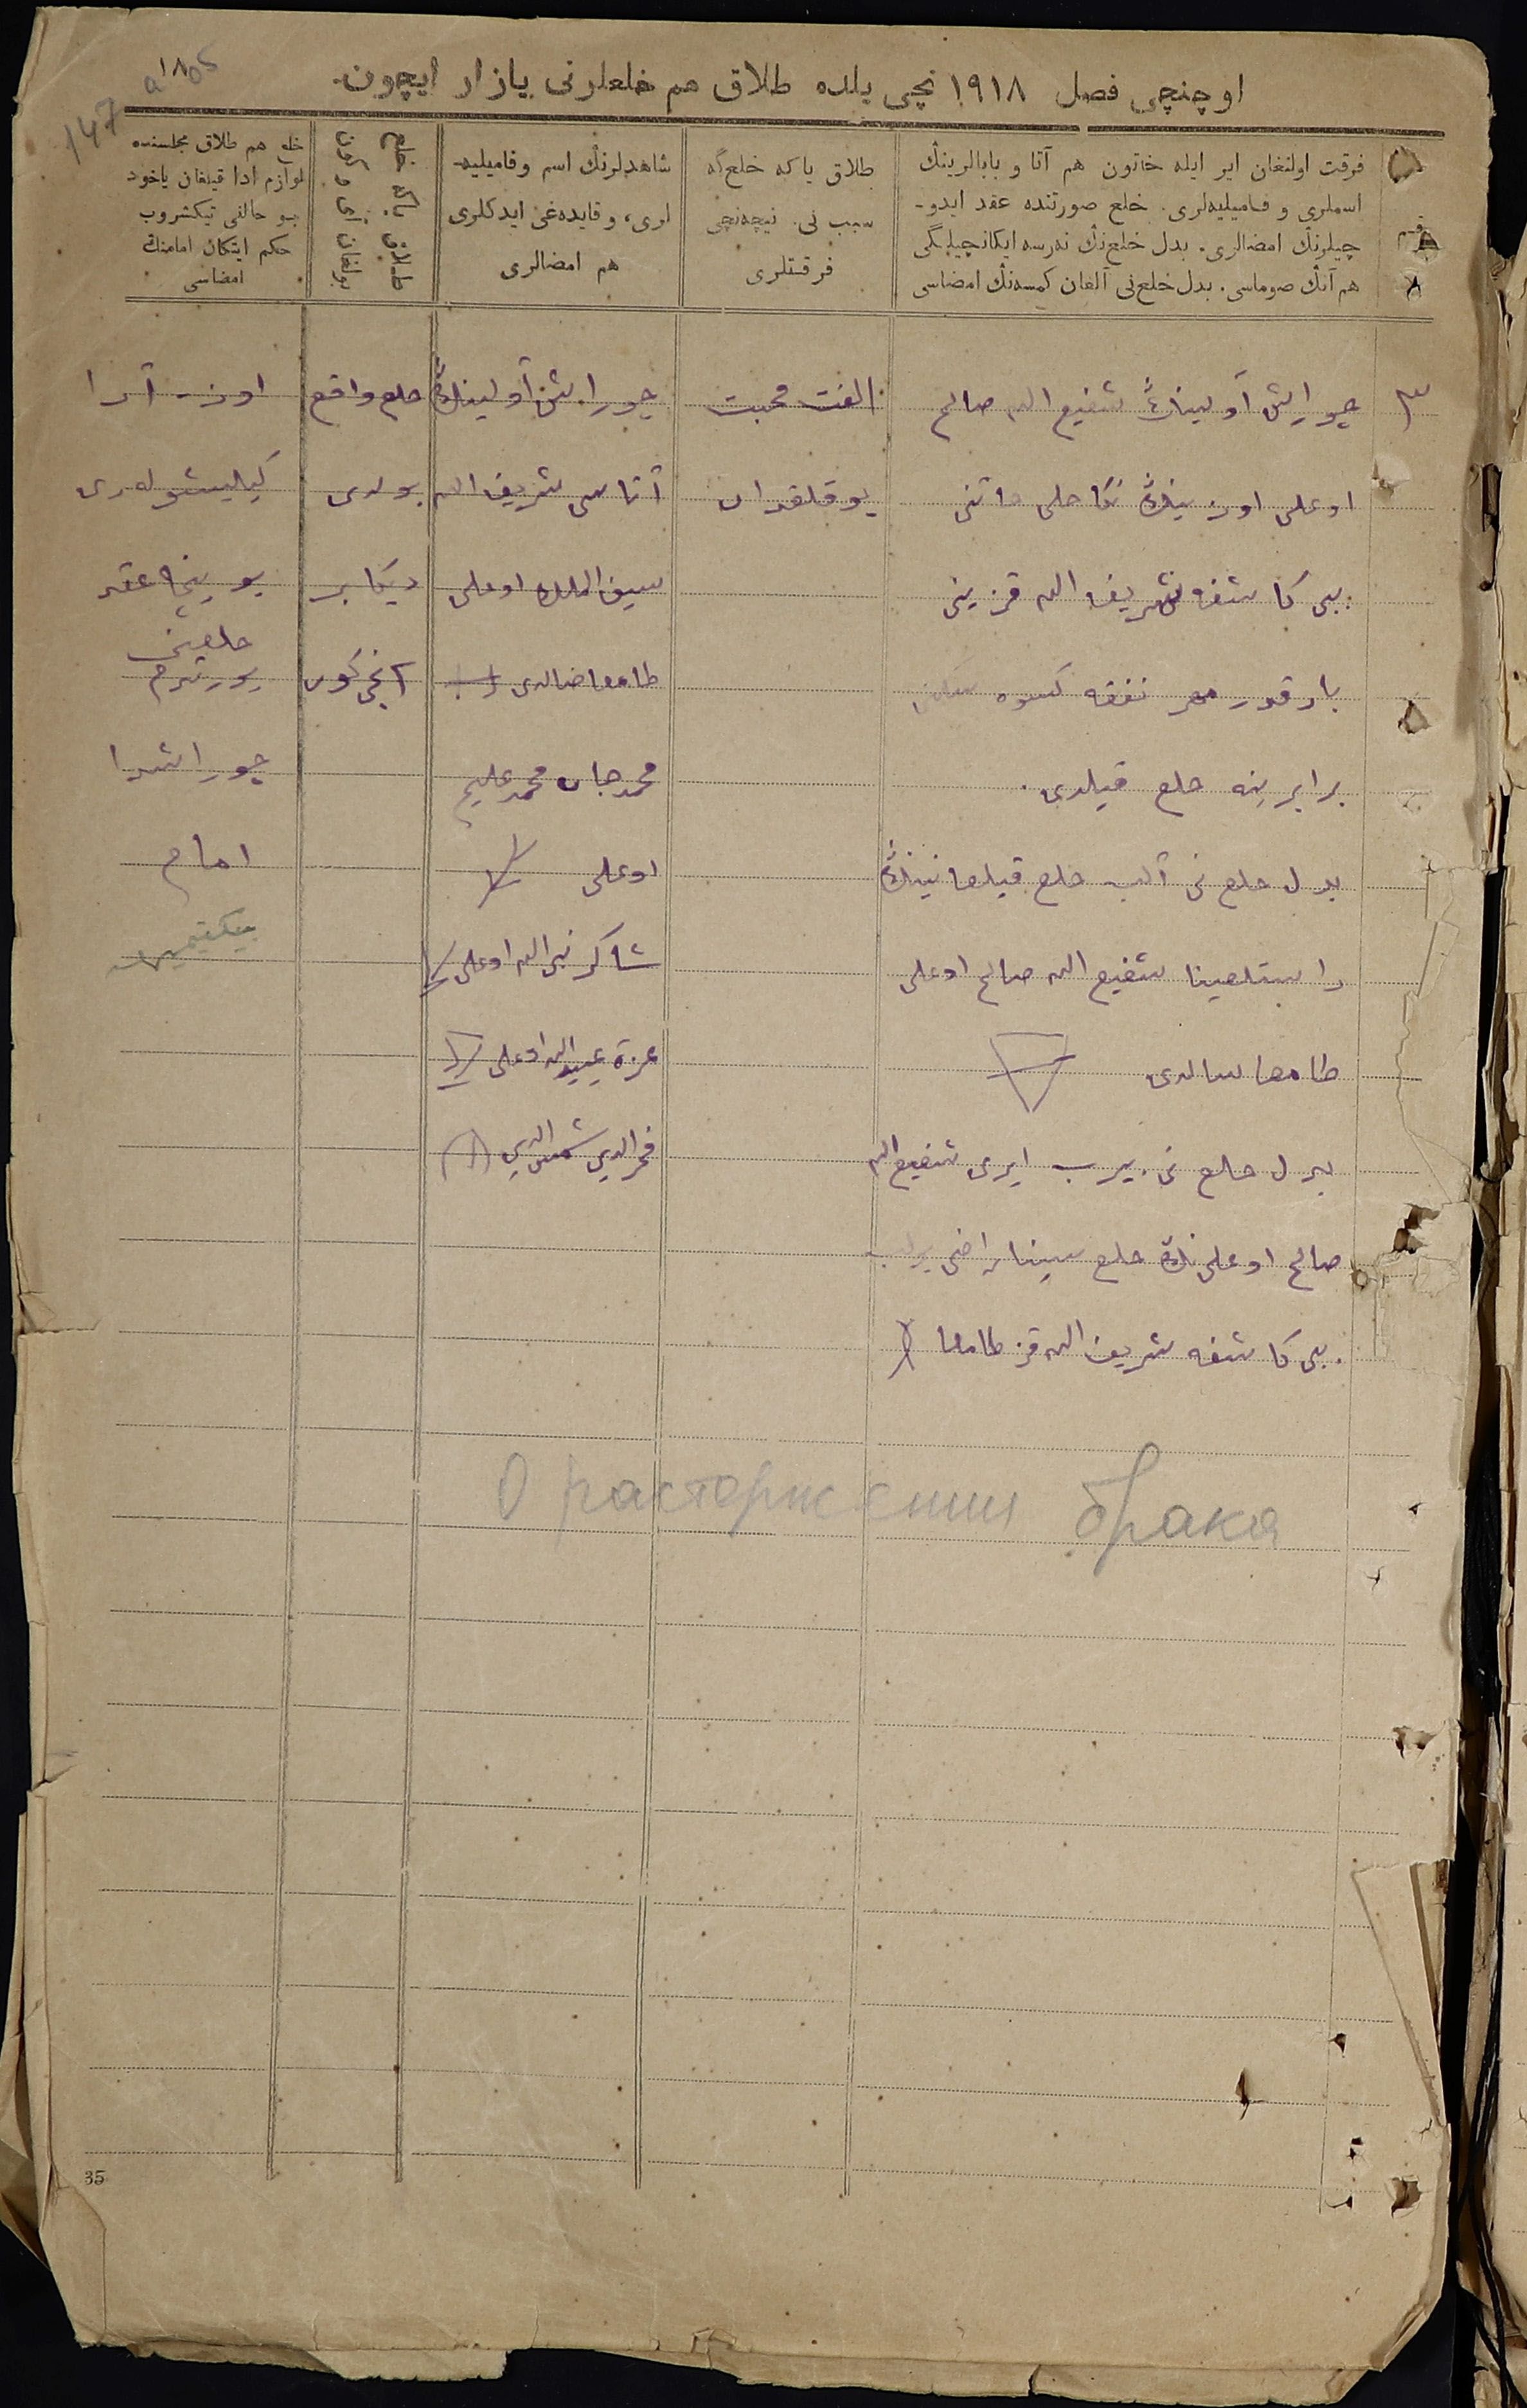 اوچنچی فصل ۱۹۱۸ نچی یلده طلاق هم خلعلرنی یازار ایچون.
147
فرقت اولنغان ایر ایله خاتون هم آتا و بابالرینڭ
اسملری و فامیلیه‌لری. خلع صورتنده عقد ایدو-
چیلرنڭ امضالری. بدل خلع‌نڭ نه‌رسه ایکانچیلیگی
هم آنڭ صوماسی. بدل خلع‌نی آلغان کمسه‌نڭ امضاسی
طلاق یاکه خلع‌گه
سبب نی. نیچه‌نچی
فرقتلری
شاهدلرنڭ اسم وفامیلیه-
لری، وقایده‌غی ایدکلری
هم امضالری
طلاق یاکه خلع
بولغان آی و کون
خلع هم طلاق مجلسنده
لوازم ادا قیلغان یاخود
بو حالنی تیکشروب
حکم ایتکان امامنڭ
امضاسی
۳
چوراش آولینڭ شفیع الله صالح
اوغلی اوزینڭ نکاحلی خاتنی
بی بی کاشفه شریف الله قزینی
بار قدر مهر نفقه کسوه
برابرینه خلع قیلدی.
بدل خلع نی آلب خلع قیلغانینڭ
راستلغینا شفیع الله صالح اوغلی
طامغا سالدی
بدل خلع نی بیرب ایری شفیع الله
صالح اوغلی‌نڭ خلع سینا راضی بولب
بی بی کاشفه شریف الله قز طامغا
الفت محبت
یوقلقدان
چوراش آولینڭ
آتاسی شریف الله
سیف الملک اوغلی
طامغا صالدی
محمدجان محمدعلیم
اوغلی
شاکر نبی الله اوغلی
عزة عبید الله اوغلی
فخرالدین شمس الدین
خلع واقع
بولدی
دیکابر
۲نچی کون
اوز آرا
کیلیشوله‌ری
بوینچه عقد
خلعنی
یورتدم
چوراشدا
امام
بیکتیمیر
О расторжении брака
35